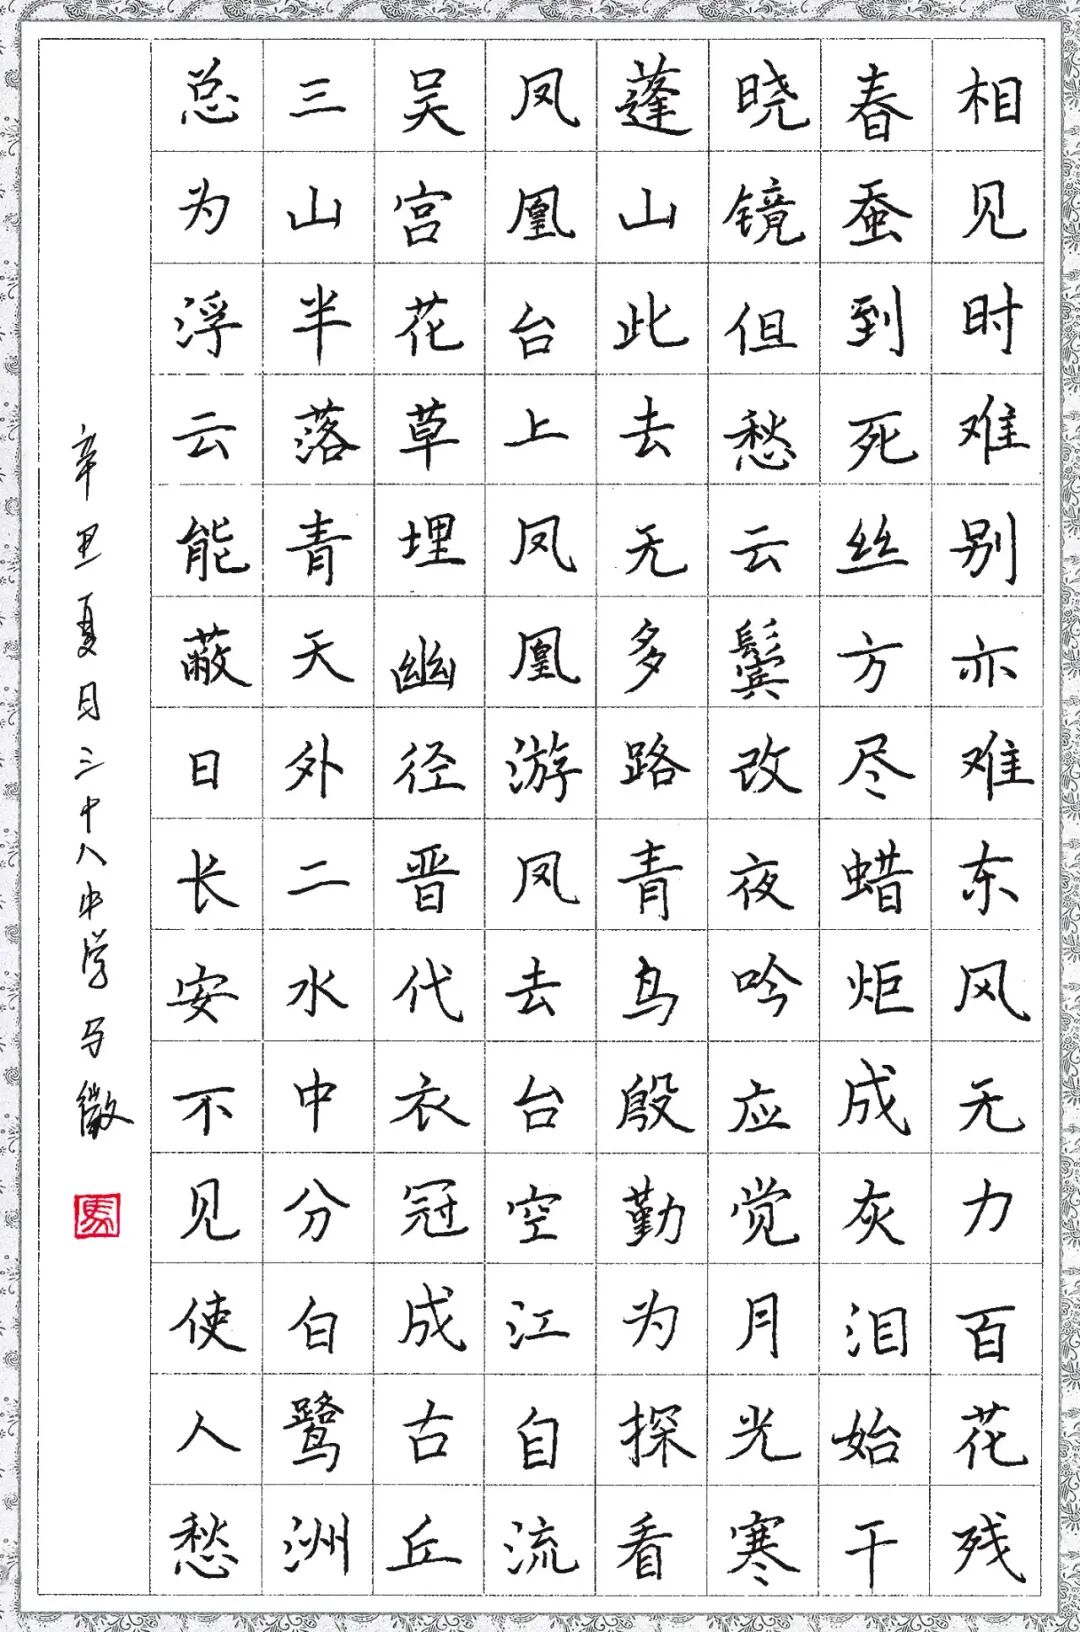 相见时难别亦难东风无力百花残
春蚕到死丝方尽蜡炬成灰泪始干
晓镜但愁云鬓改夜吟应觉月光寒
蓬山此去无多路青鸟殷勤为探看
凤凰台上凤凰游凤去台空江自流
吴宫花草埋幽径晋代衣冠成古丘
三山半落青天外二水中分白鹭洲
总为浮云能蔽日长安不见使人愁
辛丑夏日三十八中学马徽
馬